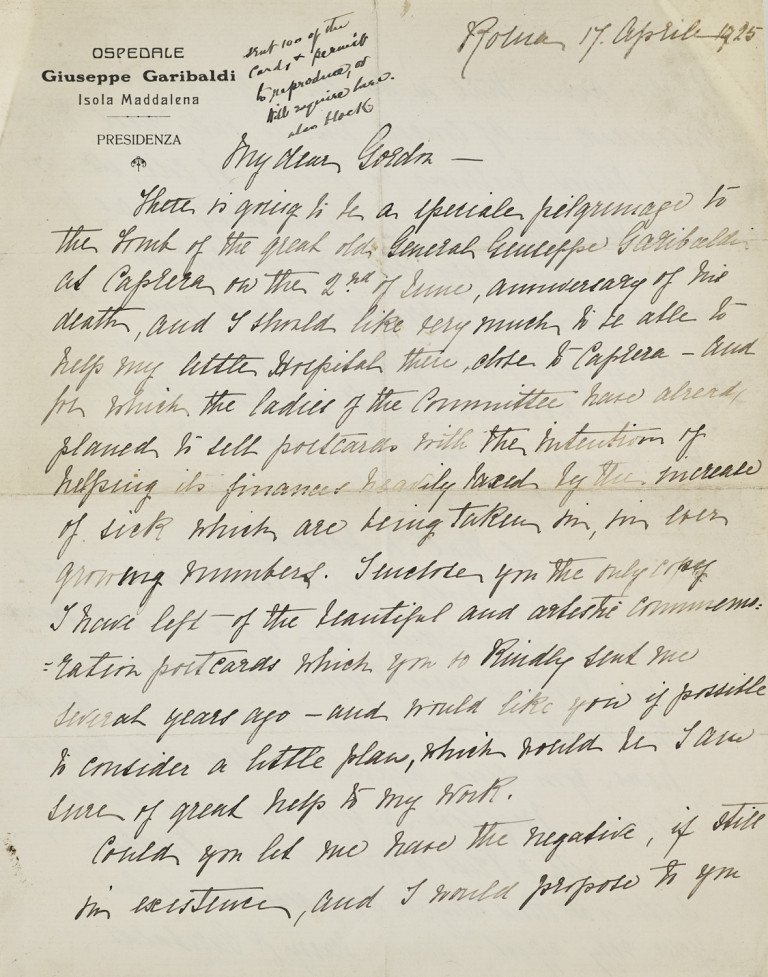 OSPEDALE
Giuseppe Garibaldi
Isola Maddalena
PRESIDENZA
Roma 17. Aprile 1925
sent 100 of the
cards & permit
to reproduce, or
will require here
also block
My dear Gordon —
There is going to be a speciale pilgrimage to
the tomb of the great old General Giuseppe Garibaldi
at Caprera on the 2nd of June, anniversary of his
death, and I should like very much to be able to
help my little Hospital there, close to Caprera – and
for which the ladies of the Committee have already
planed to sell postcards with the intention of
helping its finances heavily taxed by the increase
of sick which are being taken in, in ever
growing numbers. I enclose you the only copy
I have left of the beautiful and artistic commemo:
=ration postcards which you so Kindly sent me
several years ago – and would like you if possible
to consider a little plan, which would be I am
sure of great help to my work.
Could you let me have the negative, if still
in existence, and I would propose to you